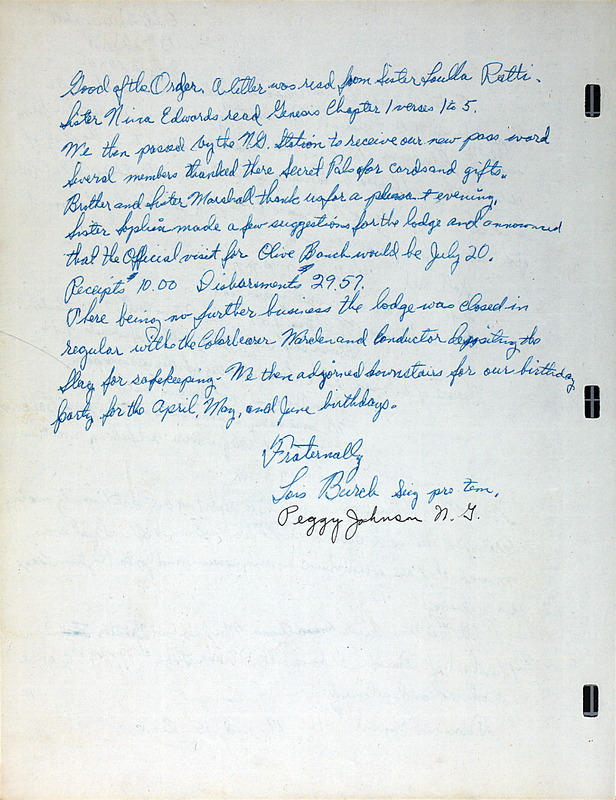 Good of the Order. A letter was read from Sister Louella Ratti.
Sister Nina Edwards read Genesis Chapter 1 verses 1 to 5.
We then passed by the N.G. Station to receive our new pass word
Several members thanked there Secret Pals for cards and gifts.
Brother and Sister Marshall thank us for a pleasant evening.
Sister Sophia made a few suggestions for the lodge and announced
that the Official visit for Olive Branch would be July 20.
Receipts $10.00 Disbursments $29.57.
There being no further business the lodge was closed in
regular with the Colorbearer Warden and Conductor depositing the
flag for safekeeping. We then adjorned downstairs for our birthday
party for the April, May, and June birthdays.
Fraternally
Lois Burch Sec pro tem.
Peggy Johnson N. G.